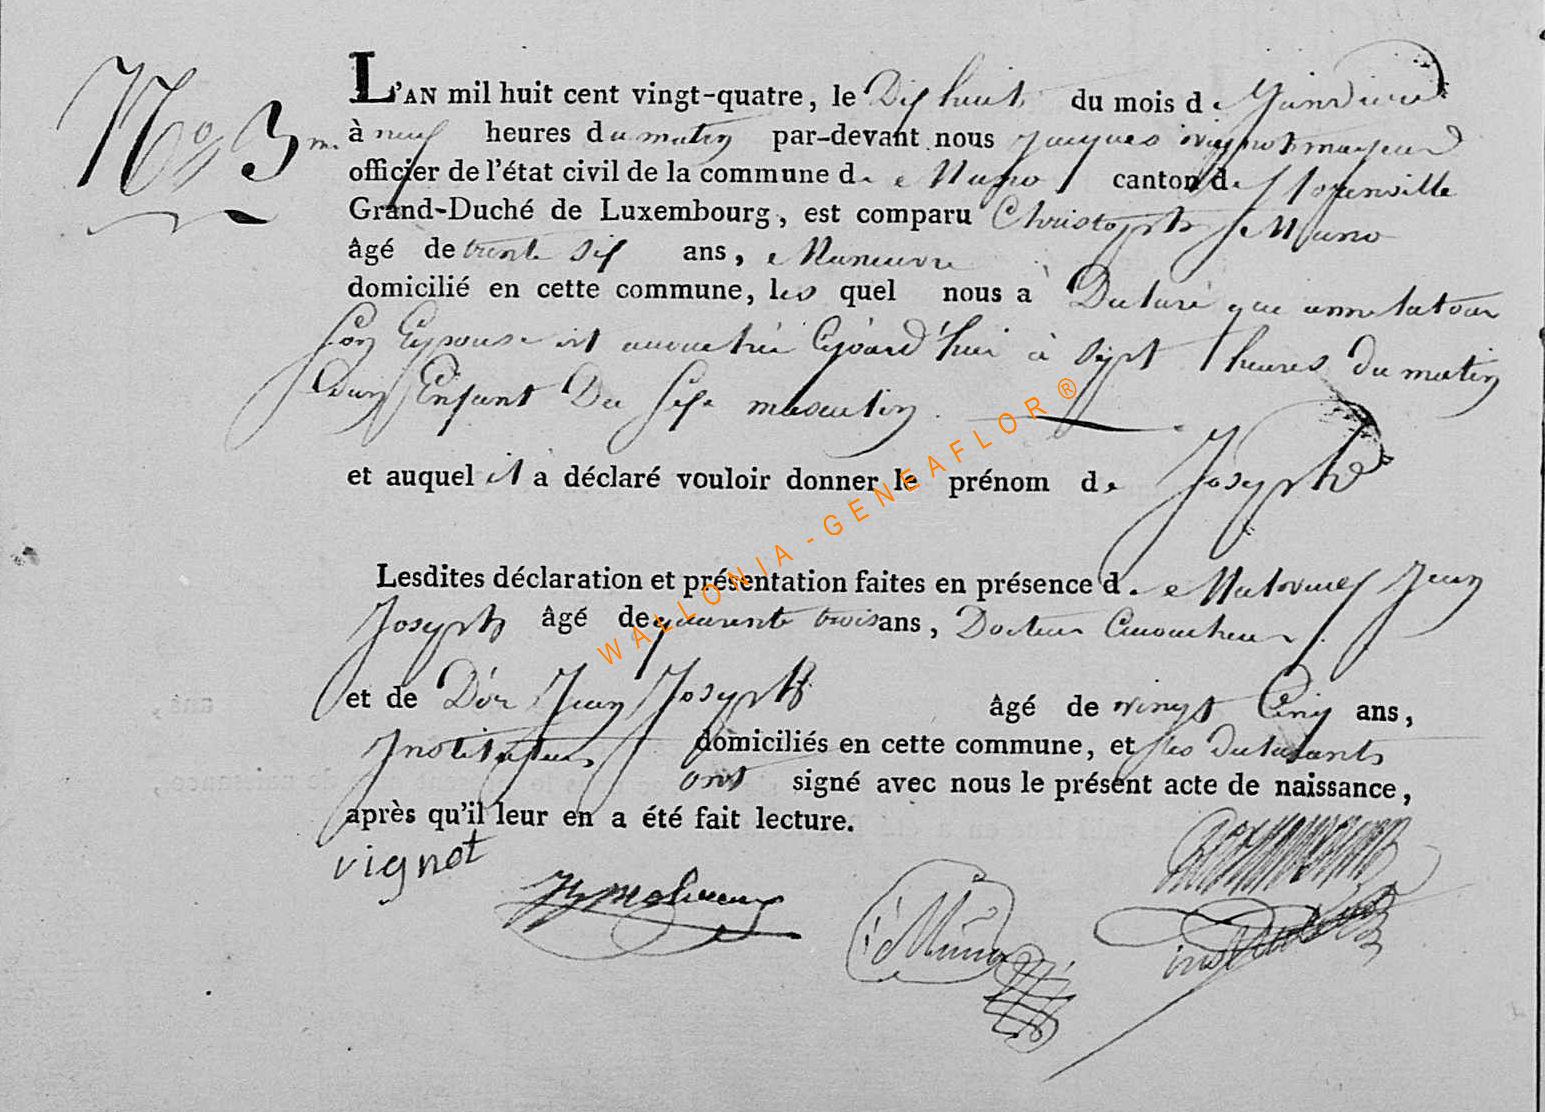 No 3
L'AN mil huit cent vingt-quatre, le Dix huit du mois de
à neuf heures du matin par-devant nous jacques vignot mayeur
officier de l'état civil de la commune de Muno canton de florenville
Grand-Duché de Luxembourg, est comparu Christophe Muno
âgé de trente six ans, Maneuvre
domicilié en cette commune, les quel nous a Déclaré que anne latour
son Epouse est accouchée Cejourd'hui à sept heures du matin
d'un Enfant Du sexe masculin.
et auquel il a déclaré vouloir donner le prénom de Joseph
Lesdites déclaration et présentation faites en présence de Jean
Joseph âgé de quarente trois ans, Docteur accoucheur
et de Jean Joseph âgé de vingt Cinq ans,
Instituteur domiciliés en cette commune, et les déclarants
ont signé avec nous le présent acte de naissance,
après qu'il leur en a été fait lecture.
vignot
Muno
WALLONIA - GENEAFLOR ®